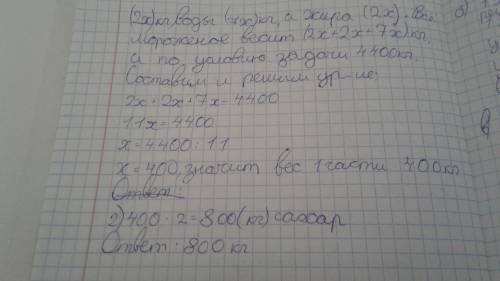 (2x) кг воды (7x) кг, а жира (2x). Все
мороженое весит (2x+2x+7x) кг
а по условию задачи 4400 кг.
Составим и решим ур-ие:
2x + 2x + 7x = 4400
11x = 4400
x = 4400 : 11
x = 400, значит вес 1 части 400 кг
Ответ:
2) 400 · 2 = 800 (кг) сахар
Ответ: 800 кг
б)
в